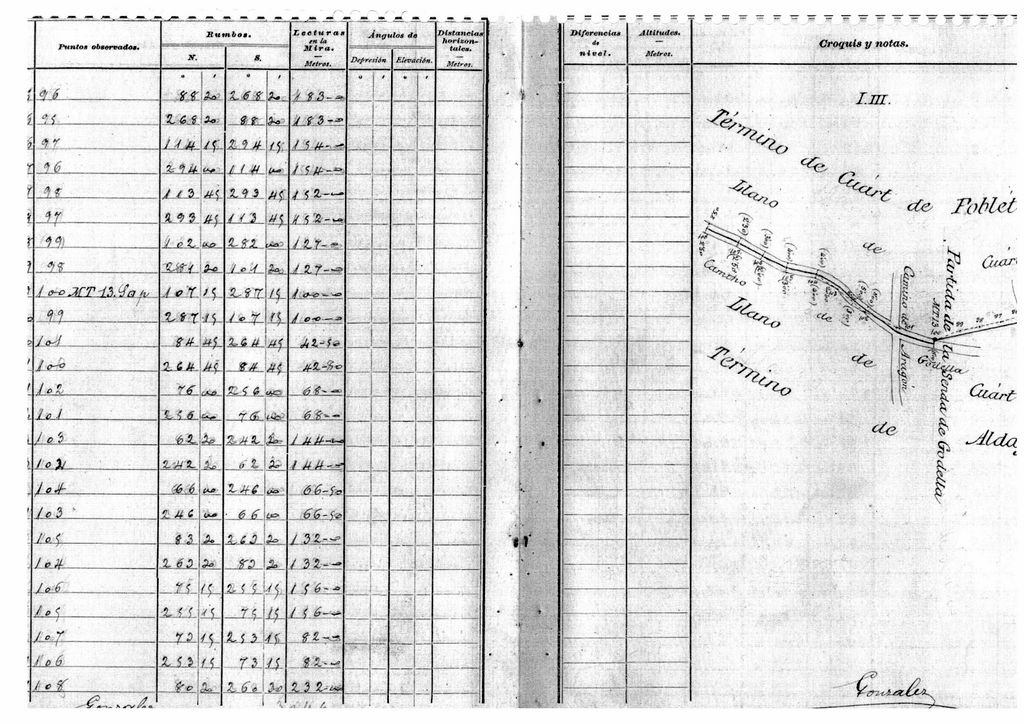 Puntos observados. Rumbos. Lecturas en la Mira. Ángulos de Distancias horizontales.
N. S. Metros. Depresión. Elevación. Metros.
° ' ° ' ° ' ° '
96 88 20 268 20 183-00
95 268 20 88 20 183-00
97 114 15 294 15 154-00
96 294 00 114 00 154-00
98 113 45 293 45 152-00
97 293 45 113 45 152-00
99 102 00 282 00 127-00
98 281 20 101 20 127-00
100 MT 13. 107 15 287 15 100-00
99 287 15 107 15 100-00
101 84 45 264 45 42-50
100 264 45 84 45 42-50
102 76 00 256 00 68-00
101 256 00 76 00 68-00
103 62 20 242 20 144-00
102 242 20 62 20 144-00
104 66 00 246 00 66-50
103 246 00 66 00 66-50
105 83 20 263 20 132-00
104 263 20 83 20 132-00
106 75 15 255 15 156-00
105 255 15 75 15 156-00
107 73 15 253 15 82-00
106 253 15 73 15 82-00
108 80 20 260 20 232-00
Gonzalez
Diferencias de nivel. Altitudes. Metros. Croquis y notas.
I.III.
Término de Cuárt de Poblét
Llano de Cuár
Camino
Partida de la Senda de Godella
Camino de Aragón
MT 13
Godella
Llano de Cuárt
Término de Alda
Gonzalez